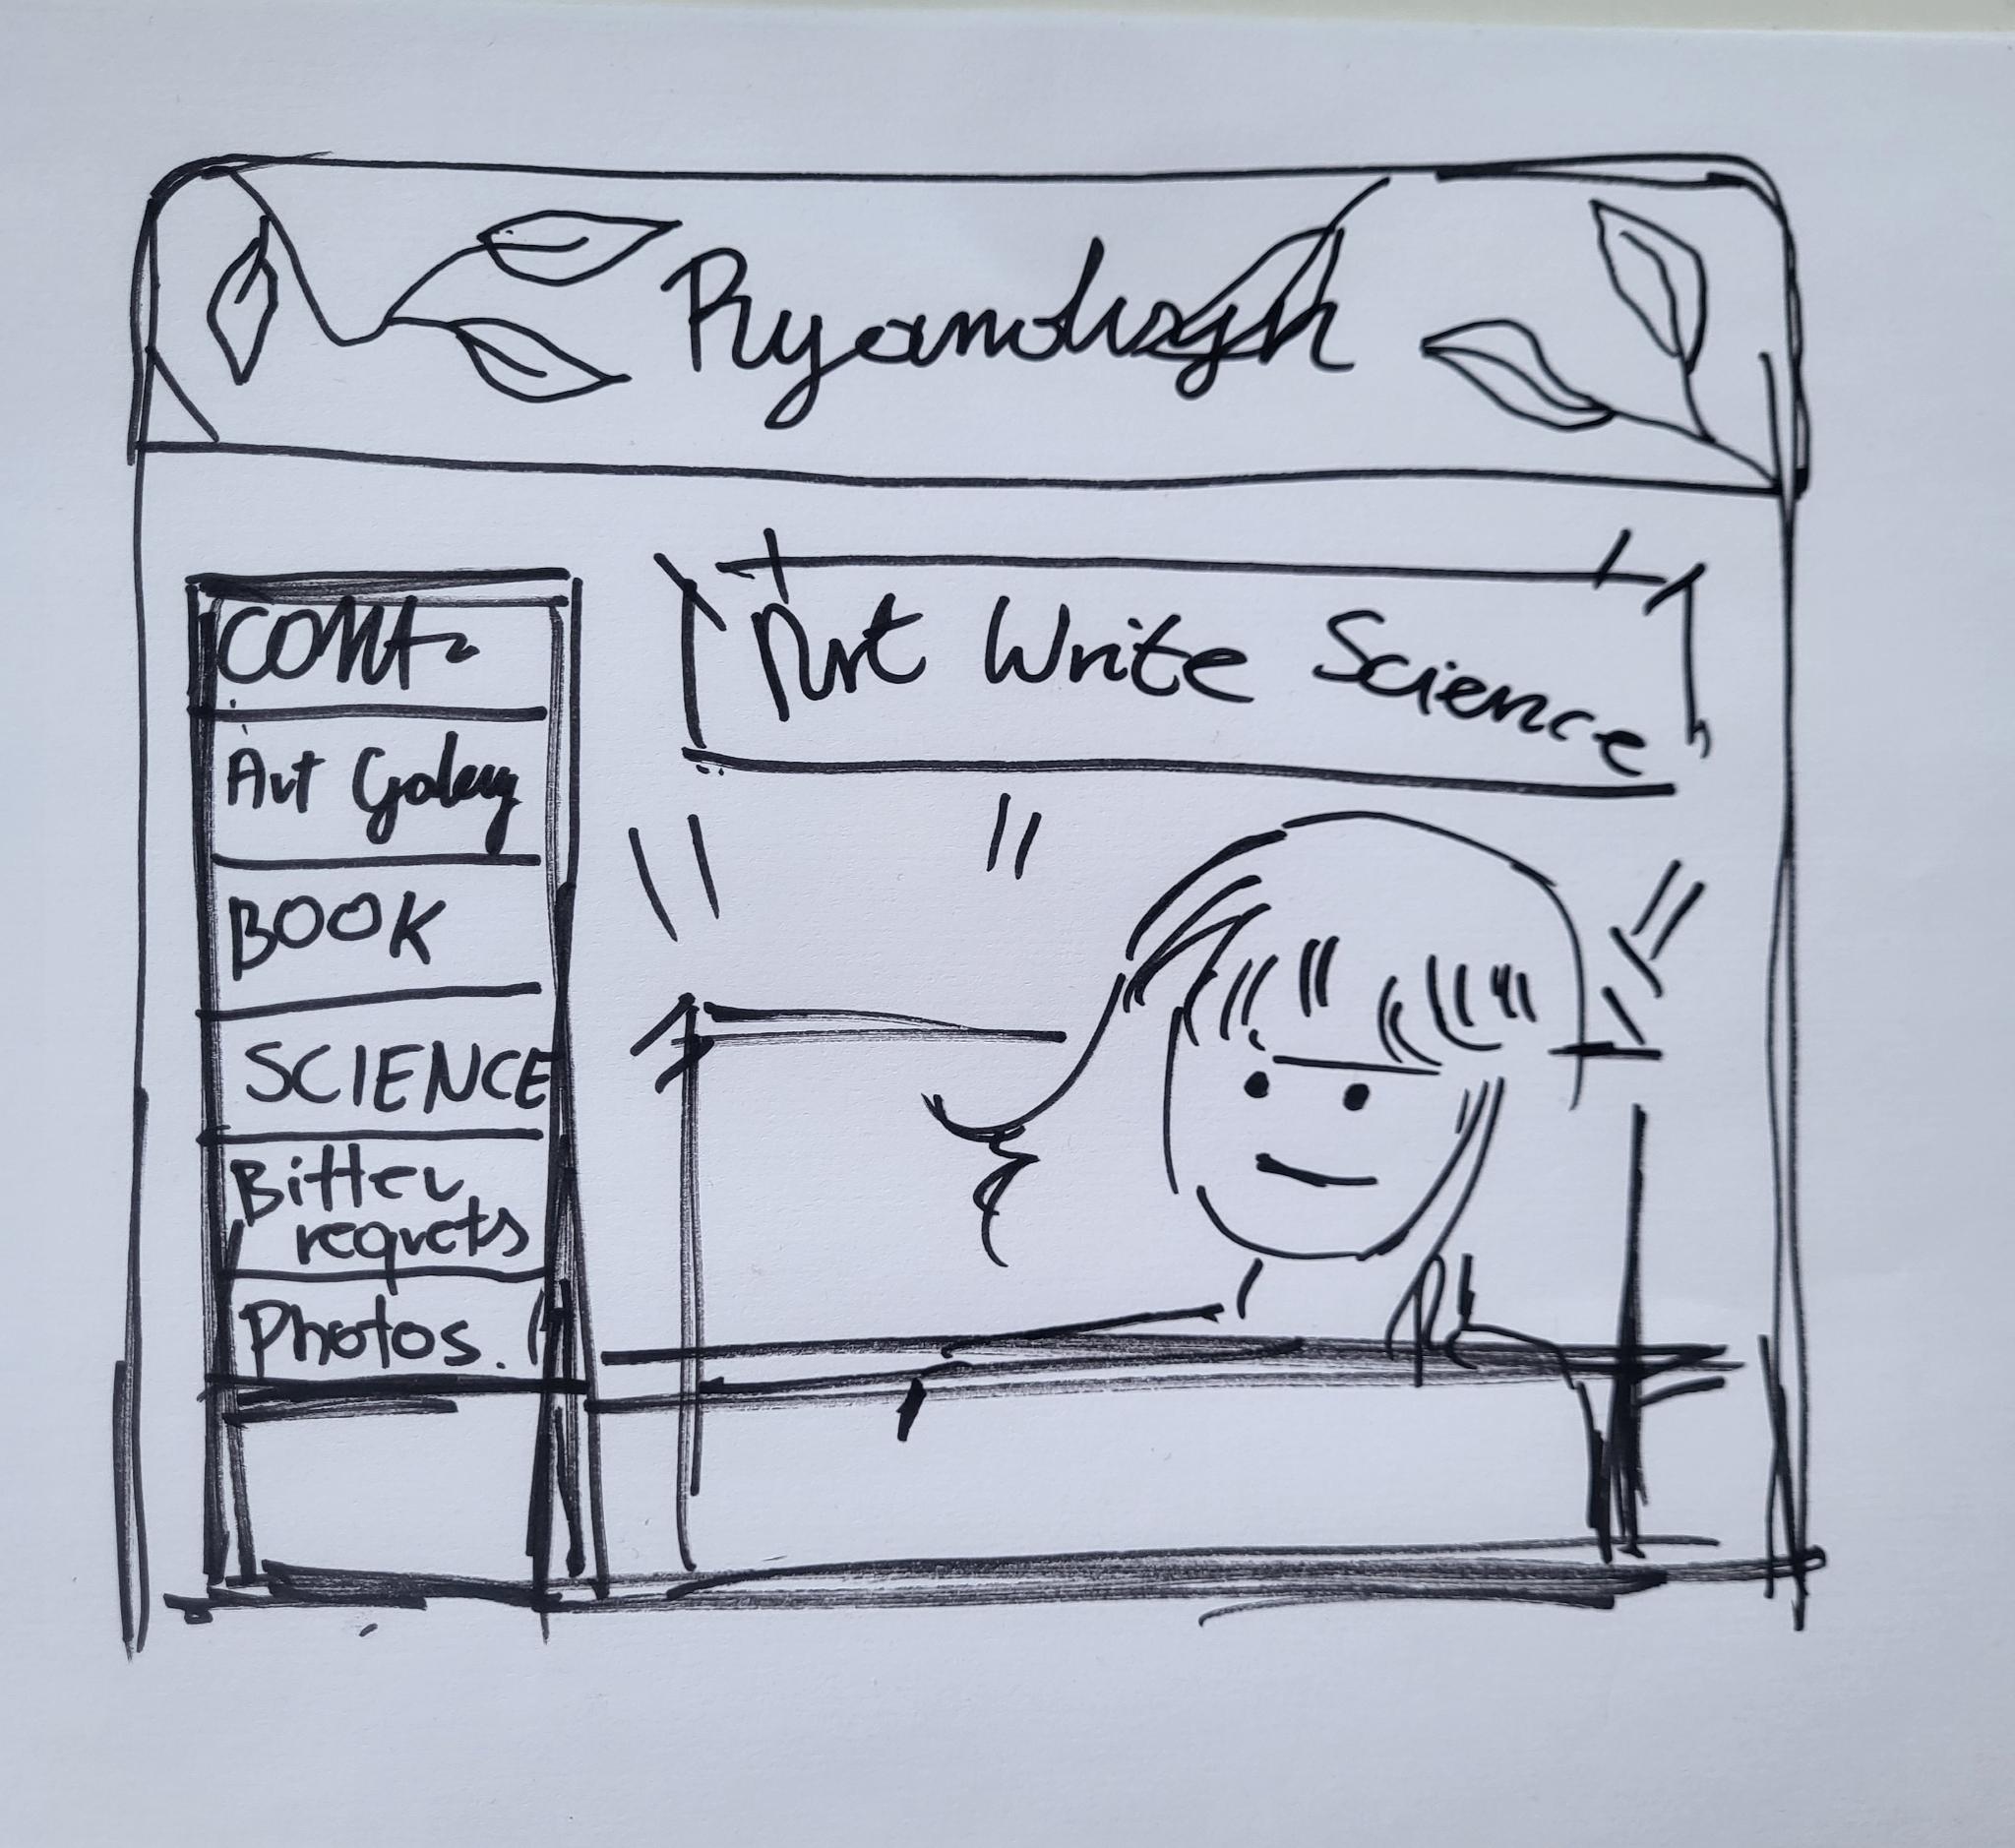 Art Write Science
Art Galery
BOOK
SCIENCE
Bitter
regrets
Photos.